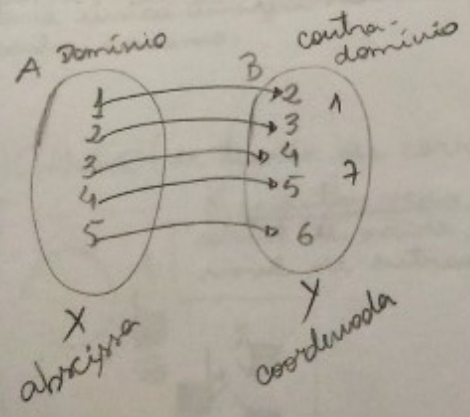 A Domínio
contra-
domínio
B
1
2
3
4
5
2 1
3
4
5 7
6
X
abscissa
Y
coordenada